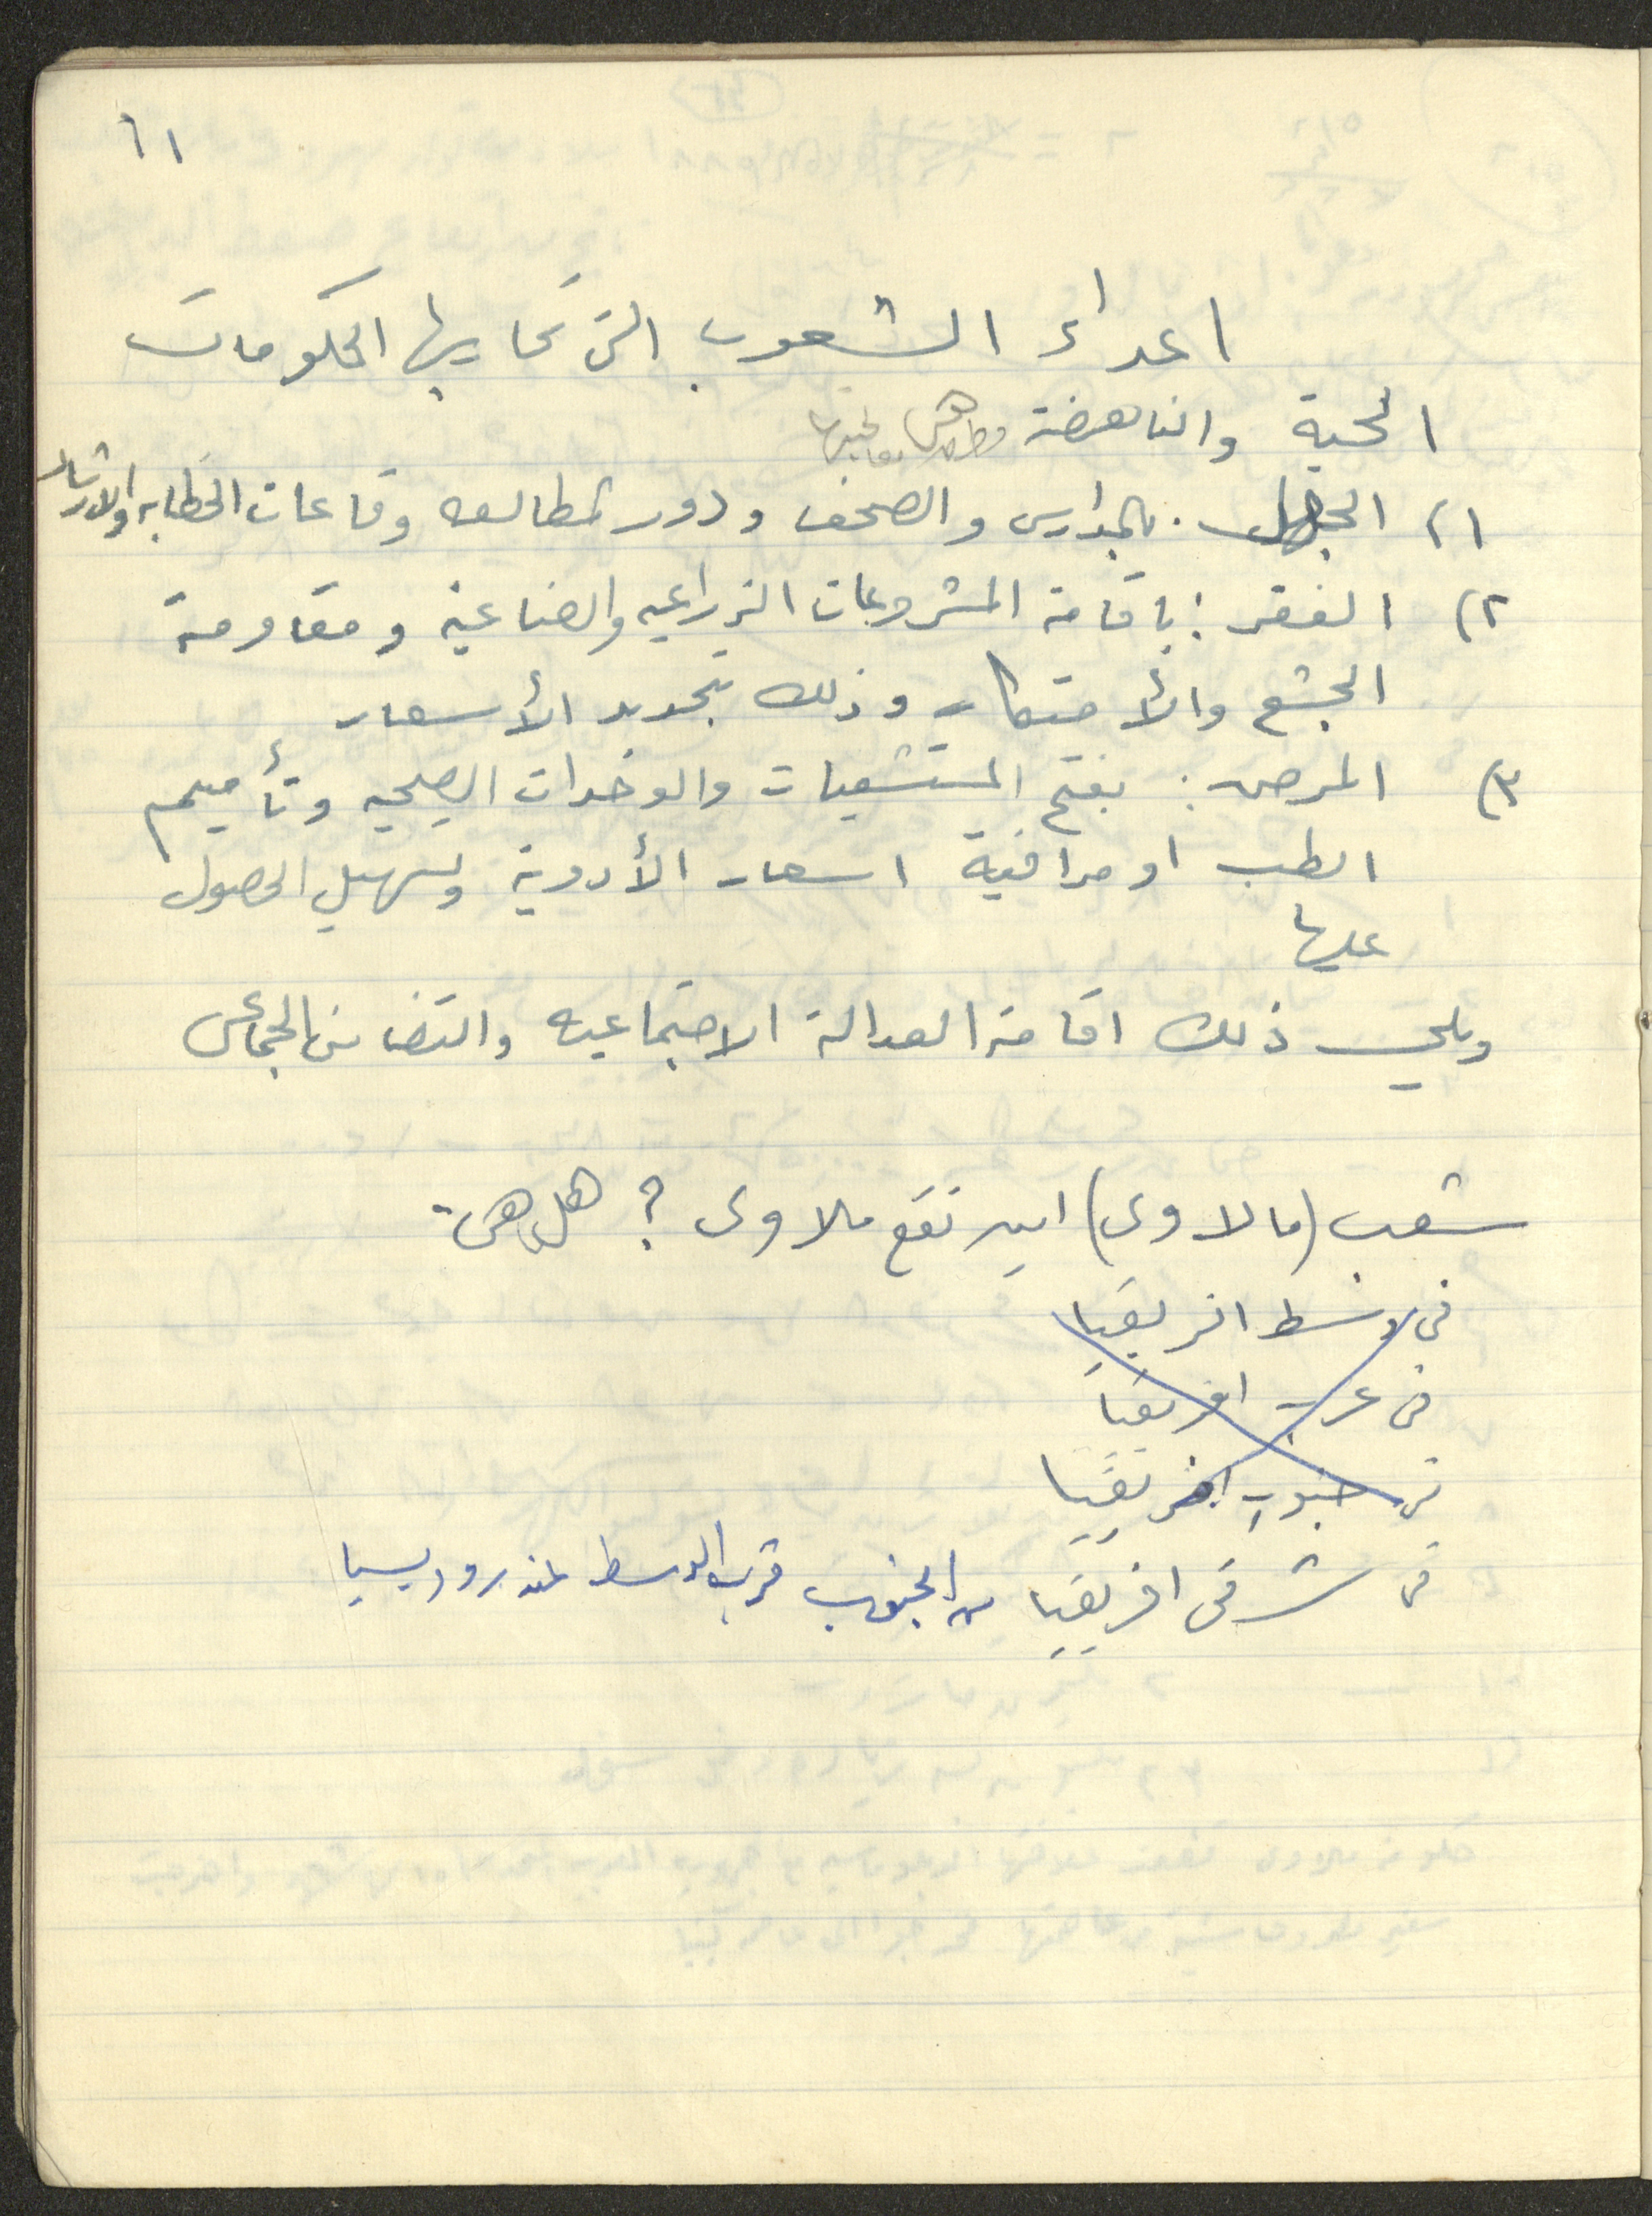 ٦١
اعداء الشعوب التى تحاربها الحكومات
الحية والناهضة
١) الجهل . بالمدارس والصحف ودور المطالعه وقاعات الخطابه والارشاد
٢) الفقر : باقامة المشروعات الزراعيه والصناعية ومقاومة
الجشع والأحتكار وذلك بتحديد الأسعار
٣) المرض : بفتح المستشفيات والوحدات الصحيه وتأميم
الطب او مراقبة اسعار الأدوية وتسهيل الحصول
عليها
ويلى ذلك اقامة العدالة الاجتماعيه والتضامن الجماعى
شعب (مالاوى) اين تقع ملاوى ؟ هل هى :
فى وسط افريقيا
فى غرب افريقيا
فى جنوب افريقيا
فى شرقى افريقيا من الجنوب قرب الوسط عند روديسيا